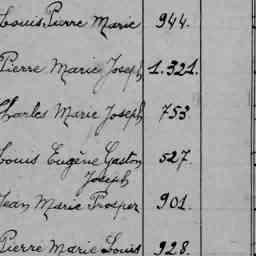 Louis Pierre Marie 944.
Pierre Marie Joseph 1.321.
Charles Marie Joseph 753
Louis Eugène Gaston 527.
Joseph
Jean Marie Prosper 901.
Pierre Marie Louis 928.